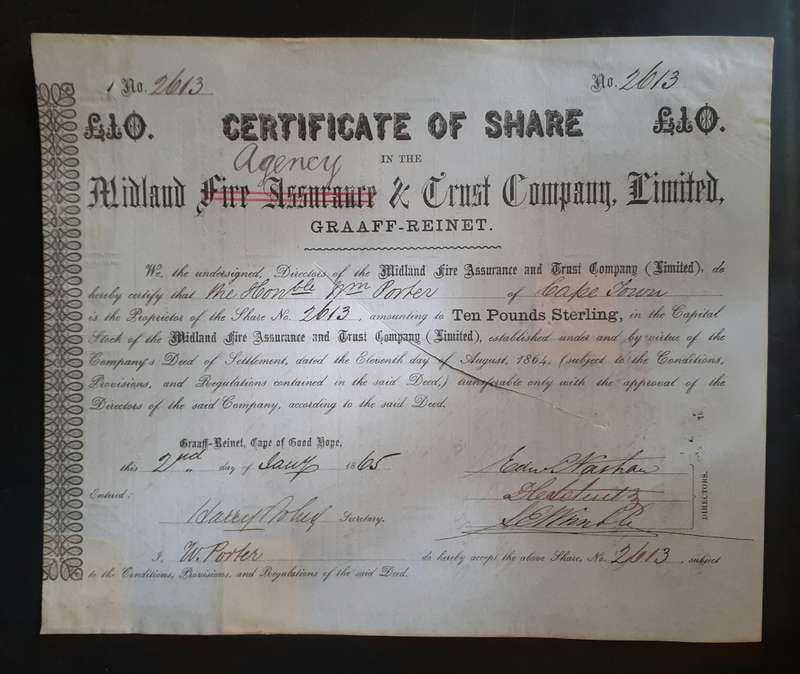 No. 2613 No. 2613
£10. CERTIFICATE OF SHARE £10.
Agency
IN THE
Midland Fire Assurance & Trust Company, Limited,
GRAAFF-REINET.
We, the undersigned, Directors of the Midland Fire Assurance and Trust Company (Limited), do
hereby certify that the Honble Wm Porter of Cape Town
is the Proprietor of the Share No. 2613, amounting to Ten Pounds Sterling, in the Capital
Stock of the Midland Fire Assurance and Trust Company (Limited), established under and by virtue of the
Company's Deed of Settlement, dated the Eleventh day of August, 1864, (subject to the Conditions,
Provisions, and Regulations contained in the said Deed,) transferable only with the approval of the
Directors of the said Company, according to the said Deed.
Graaff-Reinet, Cape of Good Hope,
this 2nd day of Jany 1865
Entered:
Secretary.
DIRECTORS.
I, W. Porter do hereby accept the above Share, No. 2613, subject
to the Conditions, Provisions, and Regulations of the said Deed.